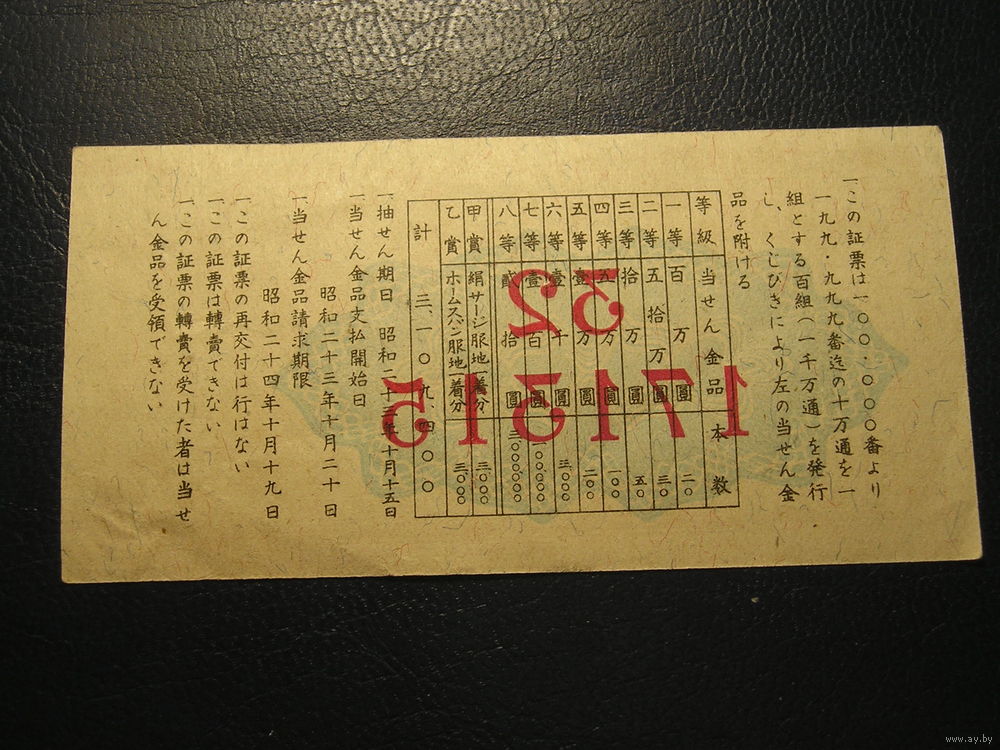 一この証票は一〇〇・〇〇〇番より
一九九・九九九番迄の十万通を一
組とする百組(一千万通)を発行
し、くじびきにより左の当せん金
品を附ける
等級 当せん金品 本数
一等 百万圓 二〇
二等 五拾万圓 三〇
三等 拾万圓 五〇
四等 五万圓 一〇〇
五等 壹万圓 二〇〇
六等 壹千圓 三、〇〇〇
七等 壹百圓 一〇〇、〇〇〇
八等 貳拾圓 三、〇〇〇、〇〇〇
甲賞 絹サージ服地一着分 三、〇〇〇
乙賞 ホームスパン服地一着分 三、〇〇〇
計 三、一〇九、四〇〇
一抽せん期日 昭和二十三年十月十五日
一当せん金品支払開始日
昭和二十三年十月二十日
一当せん金品請求期限
昭和二十四年十月十九日
一この証票の再交付は行はない
一この証票は轉賣できない
一この証票の轉賣を受けた者は当せ
ん金品を受領できない
171515
www.ay.by